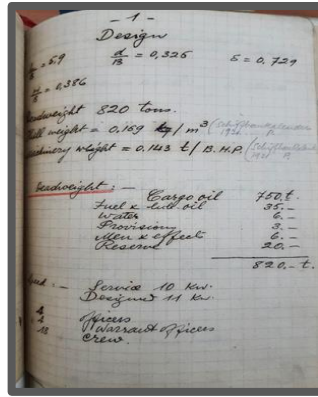 - 1 -
Design
= 5.9 d/B = 0,325 δ = 0,729
= 0,386
Deadweight 820 tons.
Hull weight = 0,159 t/m³ (Schiffbaukalender 1936 P.
Machinery weight = 0,143 t/B.H.P. (
Deadweight: —
Cargo oil 750,t.
Fuel & lub. oil 35.—
Water 6.—
Provisions 3.—
Men & effect 6.—
Reserve 20.—
820.- t.
Speed: — Service 10 Kn.
Designed 11 Kn.
4 officers
4 Warrant officers
13 crew.